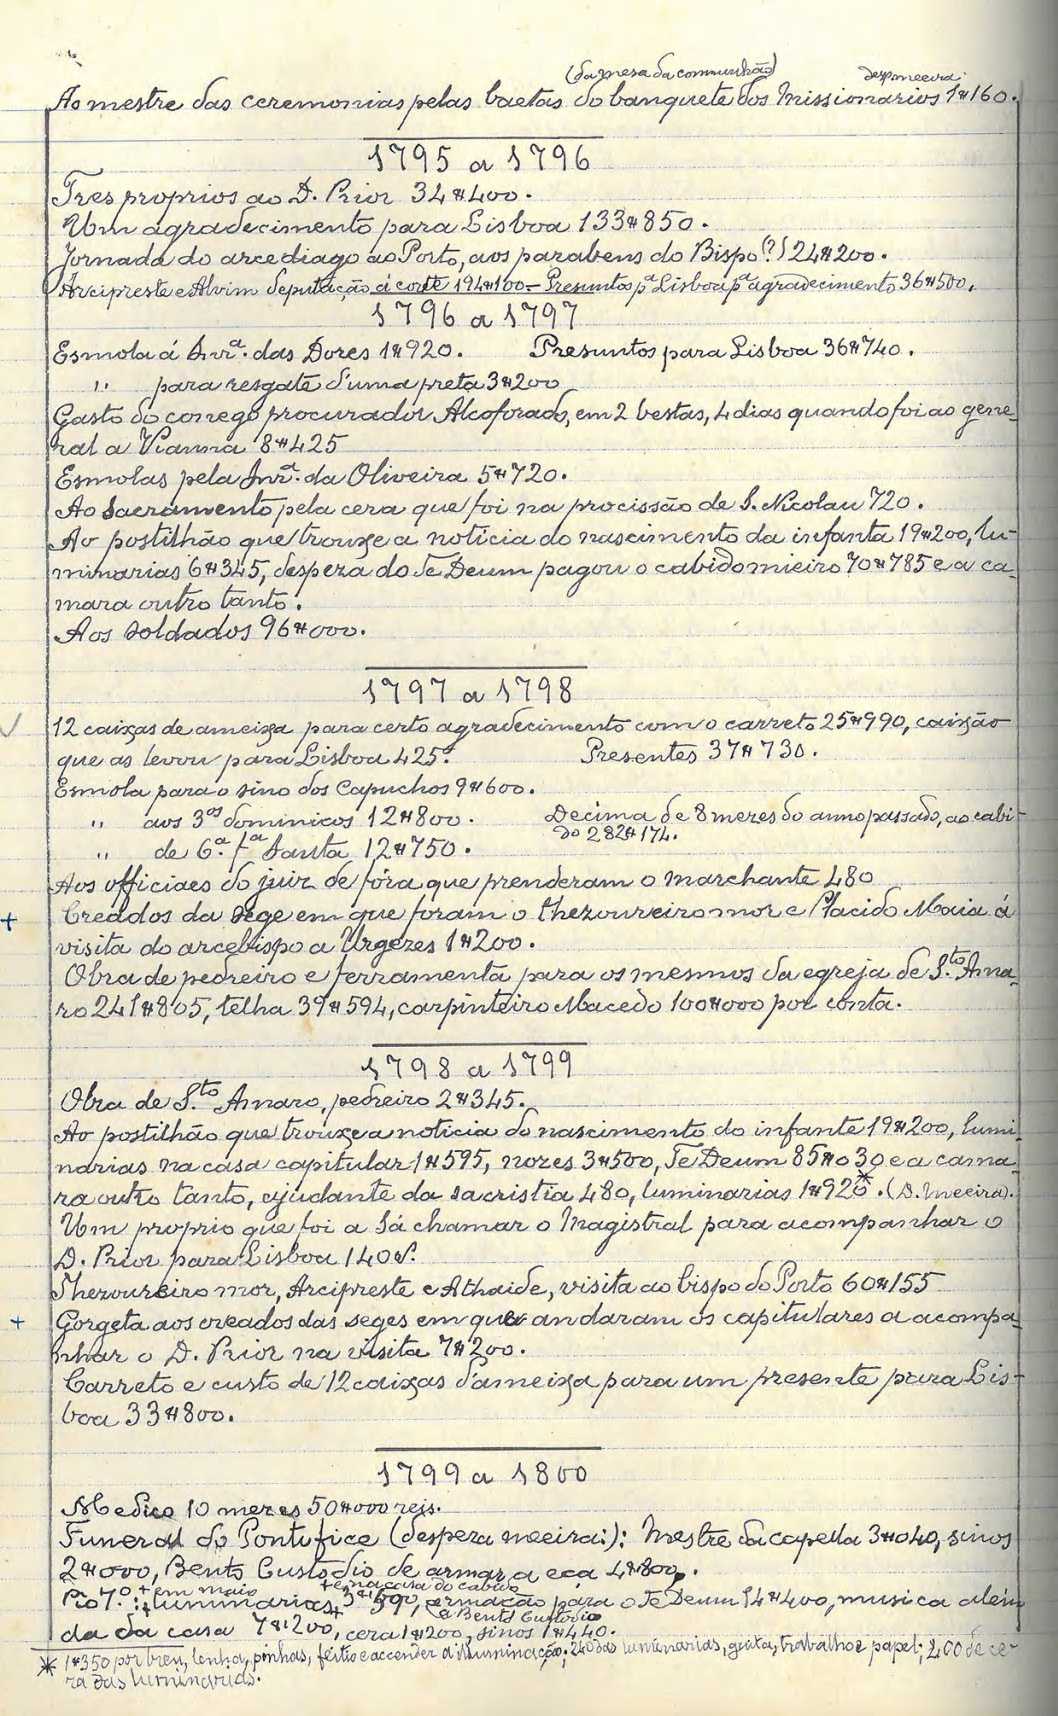 (da mesa da communhão) desp. meeira
Ao mestre das ceremonias pelas baetas do banquete dos Missionarios 1#160.
1795 a 1796
Tres proprios ao D. Prior 34#400.
Um agradecimento para Lisboa 133#850.
Jornada do arcediago ao Porto, aos parabens do Bispo (?) 24#200.
Arcipreste e Alvim deputação á corte 194#100 — Presuntos pª Lisboa pª agradecimento 36#500.
1796 a 1797
Esmola á Snrª. das Dores 1#920. Presuntos para Lisboa 36#740.
" para resgate d'uma preta 3#200
Gasto do conego procurador Alcoforado, em 2 bestas, 4 dias quando foi ao gene-
ral a Vianna 8#425
Esmolas pela Snrª. da Oliveira 5#720.
Ao Sacramento pela cera que foi na procissão de S. Nicolau 720.
Ao postilhão que trouxe a noticia do nascimento da infanta 19#200, lu-
minarias 6#345, despeza do Te Deum pagou o cabido mieiro 70#785 e a ca-
mara outro tanto.
Aos soldados 96#000.
1797 a 1798
12 caixas de ameixa para certo agradecimento com o carreto 25#990, caixão
que as levou para Lisboa 425. Presentes 37#730.
Esmola para o sino dos Capuchos 9#600.
" aos 3os dominicos 12#800. Decima de 8 mezes do anno passado, ao cabi-
do 282#174.
" de 6.ª fª Santa 12#750.
Aos officiaes do juiz de fóra que prenderam o marchante 480
+ Creados da sege em que foram o thezoureiro mor e Placido Maia á
visita do arcebispo a Urgezes 1#200.
Obra de pedreiro e ferramenta para os mesmos da egreja de S.to Ama-
ro 241#805, telha 39#594, carpinteiro Macedo 100#000 por conta.
1798 a 1799
Obra de S.to Amaro, pedreiro 2#345.
Ao postilhão que trouxe a noticia do nascimento do infante 19#200, lumi-
narias na casa capitular 1#595, nozes 3#500, Te Deum 85#030 e a cama-
ra outro tanto, ajudante da sacristia 480, luminarias 1#920*. (D. meeira).
Um proprio que foi a Sá chamar o Magistral para acompanhar o
D. Prior para Lisboa 140
Thezoureiro mor, Arcipreste e Athaide, visita ao bispo do Porto 60#155
+ Gorgeta aos creados das seges em que andaram os capitulares a acompa-
nhar o D. Prior na visita 7#200.
Carreto e custo de 12 caixas d'ameixa para um presente para Lis-
boa 33#800.
1799 a 1800
Medico 10 mezes 50#000 reis.
Funeral do Pontifice (despeza meeira): Mestre da capella 3#040, sinos
2#000, Bento Custodio de armar a eça 4#800.
+ em maio + e na casa do cabido
Pio 7.º: + luminarias, armação para o Te Deum 14#400, musica além
a Bento Custodio
da da casa 7#200, cera 1#200, sinos 1#440.
* 1#350 por breu, lenha, pinhas, feitio e accender a illuminação; 240 das luminarias, gesta, trabalho e papel; 200 de ce-
ra das luminarias.